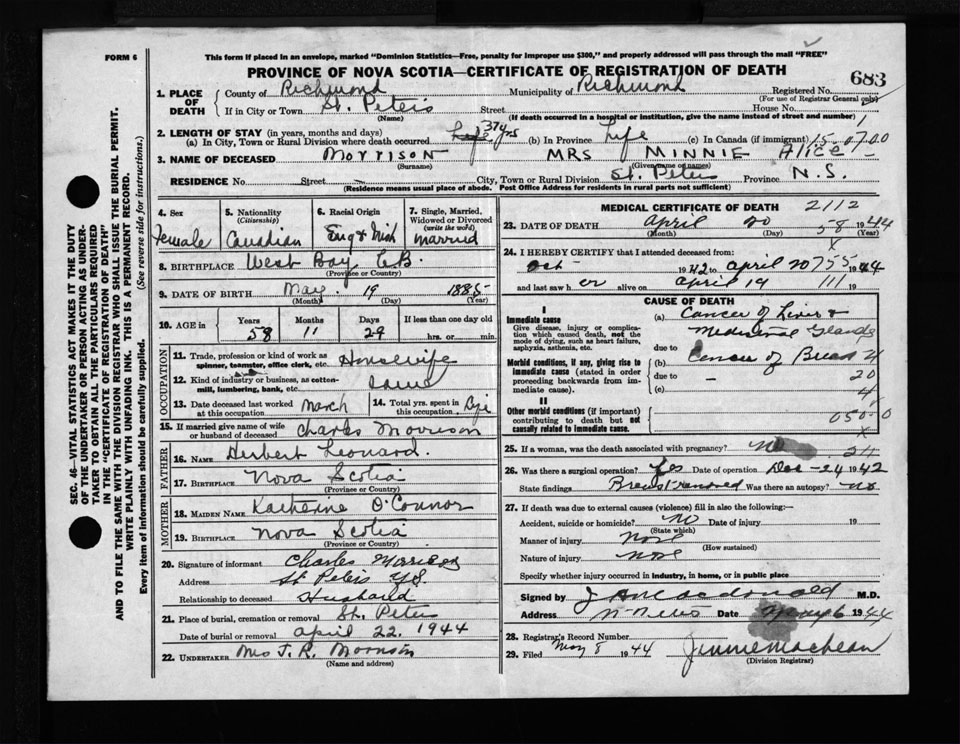 FORM 6
This form if placed in an envelope, marked "Dominion Statistics—Free, penalty for improper use $300," and properly addressed will pass through the mail "FREE"
PROVINCE OF NOVA SCOTIA—CERTIFICATE OF REGISTRATION OF DEATH
683
SEC. 46—VITAL STATISTICS ACT MAKES IT THE DUTY
OF THE UNDERTAKER OR PERSON ACTING AS UNDER-
TAKER TO OBTAIN ALL THE PARTICULARS REQUIRED
IN THE "CERTIFICATE OF REGISTRATION OF DEATH"
AND TO FILE THE SAME WITH THE DIVISION REGISTRAR WHO SHALL ISSUE THE BURIAL PERMIT.
WRITE PLAINLY WITH UNFADING INK. THIS IS A PERMANENT RECORD.
Every item of Information should be carefully supplied. (See reverse side for instructions.)
1. PLACE OF DEATH County of Richmond Municipality of Richmond Registered No.
(For use of Registrar General only)
If in City or Town St. Peters Street House No.
(Name) (If death occurred in a hospital or institution, give the name instead of street and number)
2. LENGTH OF STAY (in years, months and days)
(a) In City, Town or Rural Division where death occurred 37 yrs (b) In Province Life (c) In Canada (if immigrant) 15-0700
3. NAME OF DECEASED MORRISON MRS MINNIE Alice
(Surname) (Given name or names)
RESIDENCE No. Street City, Town or Rural Division St. Peters Province N.S.
(Residence means usual place of abode. Post Office Address for residents in rural parts not sufficient)
4. Sex Female
5. Nationality (Citizenship) Canadian
6. Racial Origin Eng & Irish
7. Single, Married, Widowed or Divorced (write the word) Married
8. BIRTHPLACE West Bay C.B.
(Province or Country)
9. DATE OF BIRTH May 19 1885
(Month) (Day) (Year)
10. AGE in Years 58 Months 11 Days 29 If less than one day old hrs. or min.
OCCUPATION
11. Trade, profession or kind of work as spinner, teamster, office clerk, etc. Housewife
12. Kind of industry or business, as cotton-mill, lumbering, bank, etc. same
13. Date deceased last worked at this occupation March
14. Total yrs. spent in this occupation
15. If married give name of wife or husband of deceased Charles Morrison
FATHER
16. Name Herbert Leonard
17. Birthplace Nova Scotia
(Province or Country)
MOTHER
18. Maiden Name Katherine O'Connor
19. Birthplace Nova Scotia
(Province or Country)
20. Signature of informant Charles Morrison
Address St. Peters N.S.
Relationship to deceased Husband
21. Place of burial, cremation or removal St. Peters
Date of burial or removal April 22. 1944
22. UNDERTAKER Mrs J. R. Morrison
(Name and address)
MEDICAL CERTIFICATE OF DEATH 2112
23. DATE OF DEATH April 20 58 1944
(Month) (Day) (Year)
24. I HEREBY CERTIFY that I attended deceased from:
Oct - 1942 to April 20 755 1944
and last saw her alive on April 19 111 19
CAUSE OF DEATH
I
Immediate cause
Give disease, injury or complication which caused death, not the mode of dying, such as heart failure, asphyxia, asthenia, etc.
(a) Cancer of Liver &
Glands
due to
Morbid conditions, if any, giving rise to immediate cause (stated in order proceeding backwards from immediate cause).
(b) Cancer of Breast
due to - 20
(c) 4
II
Other morbid conditions (if important) contributing to death but not causally related to immediate cause.
050-0
25. If a woman, was the death associated with pregnancy? No
26. Was there a surgical operation? Yes Date of operation Dec - 24 1942
State findings Breast removed Was there an autopsy? No
27. If death was due to external causes (violence) fill in also the following:
Accident, suicide or homicide? No Date of injury 19
(State which)
Manner of injury None
(How sustained)
Nature of injury None
Specify whether injury occurred in industry, in home, or in public place
Signed by J A Macdonald M.D.
Address Date May 6 1944
28. Registrar's Record Number
29. Filed May 8 1944 Jimmie MacLean
(Division Registrar)